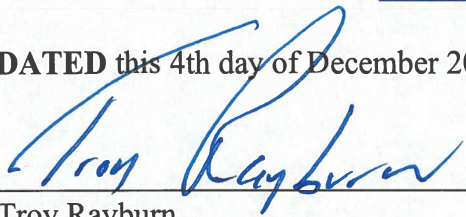 DATED this 4th day of December 20
Troy Rayburn
Troy Rayburn